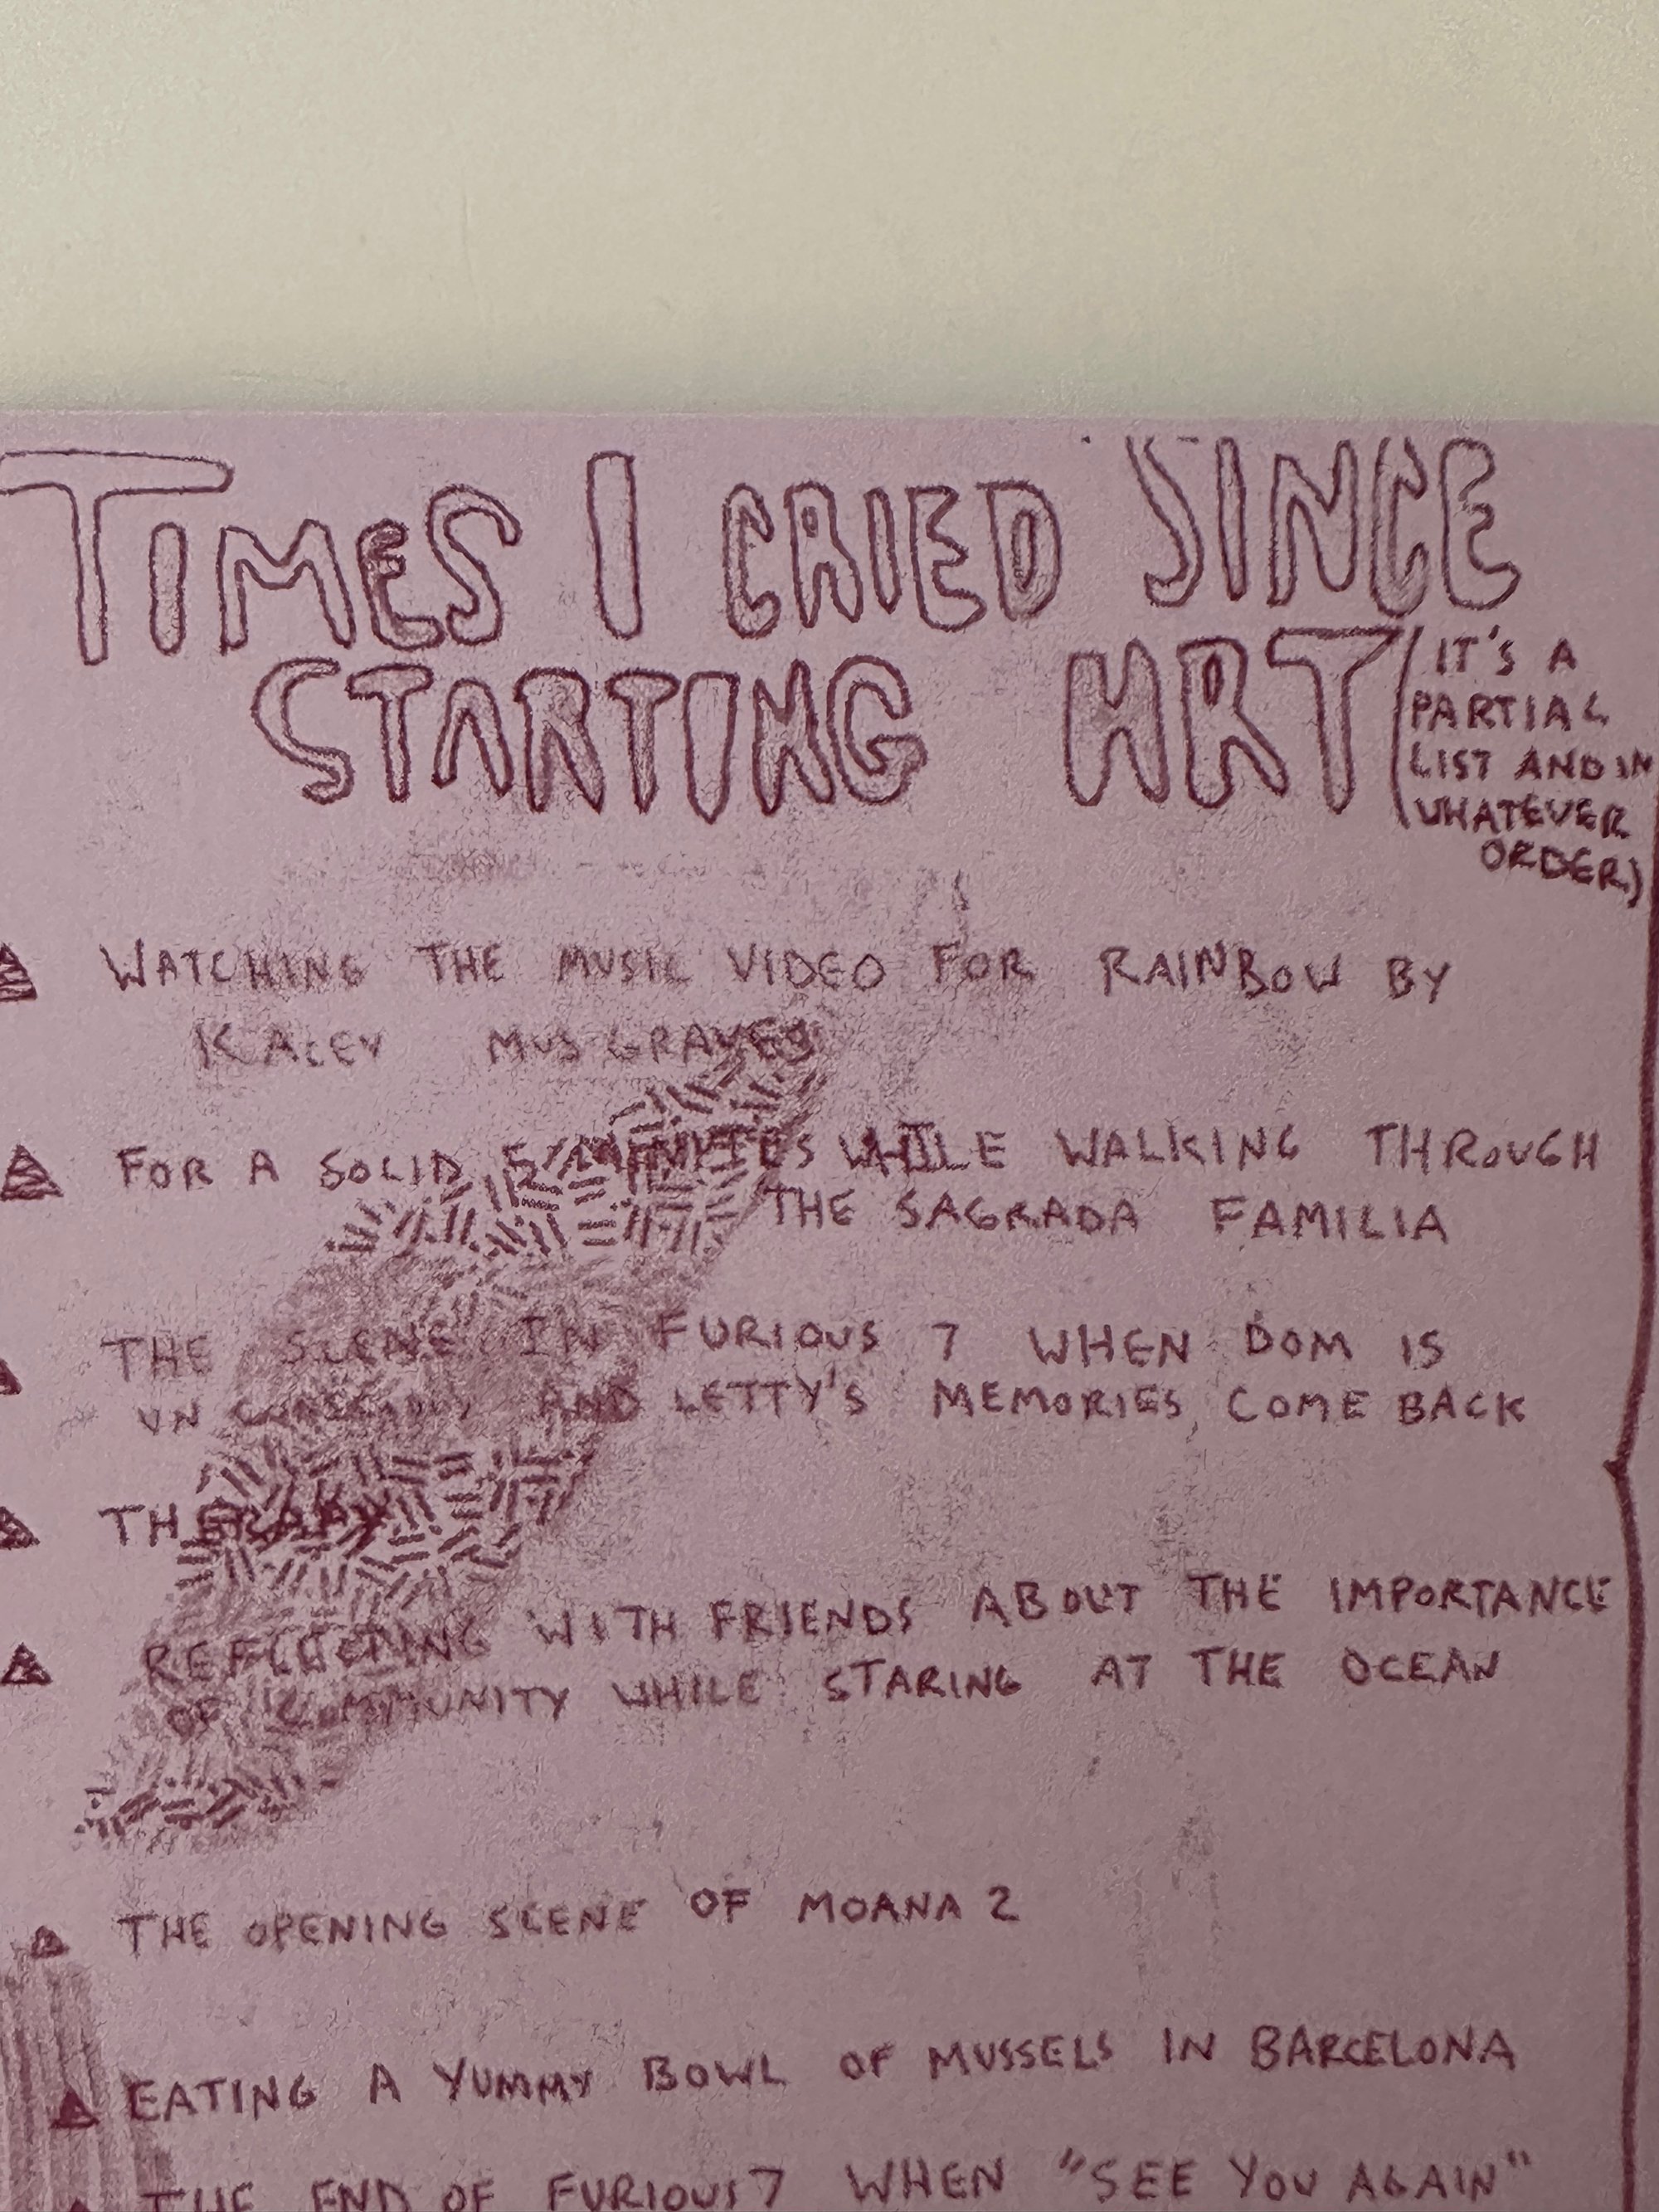 TIMES I CRIED SINCE
STARTING HRT
(IT'S A
PARTIAL
LIST AND IN
WHATEVER
ORDER)
WATCHING THE MUSIC VIDEO FOR RAINBOW BY
KACEY MUSGRAVES
FOR A SOLID 5 MINUTES WHILE WALKING THROUGH
THE SAGRADA FAMILIA
THE SCENE IN FURIOUS 7 WHEN DOM IS
UNCONSCIOUS AND LETTY'S MEMORIES COME BACK
THERAPY
REFLECTING WITH FRIENDS ABOUT THE IMPORTANCE
OF COMMUNITY WHILE STARING AT THE OCEAN
THE OPENING SCENE OF MOANA 2
EATING A YUMMY BOWL OF MUSSELS IN BARCELONA
THE END OF FURIOUS 7 WHEN "SEE YOU AGAIN"